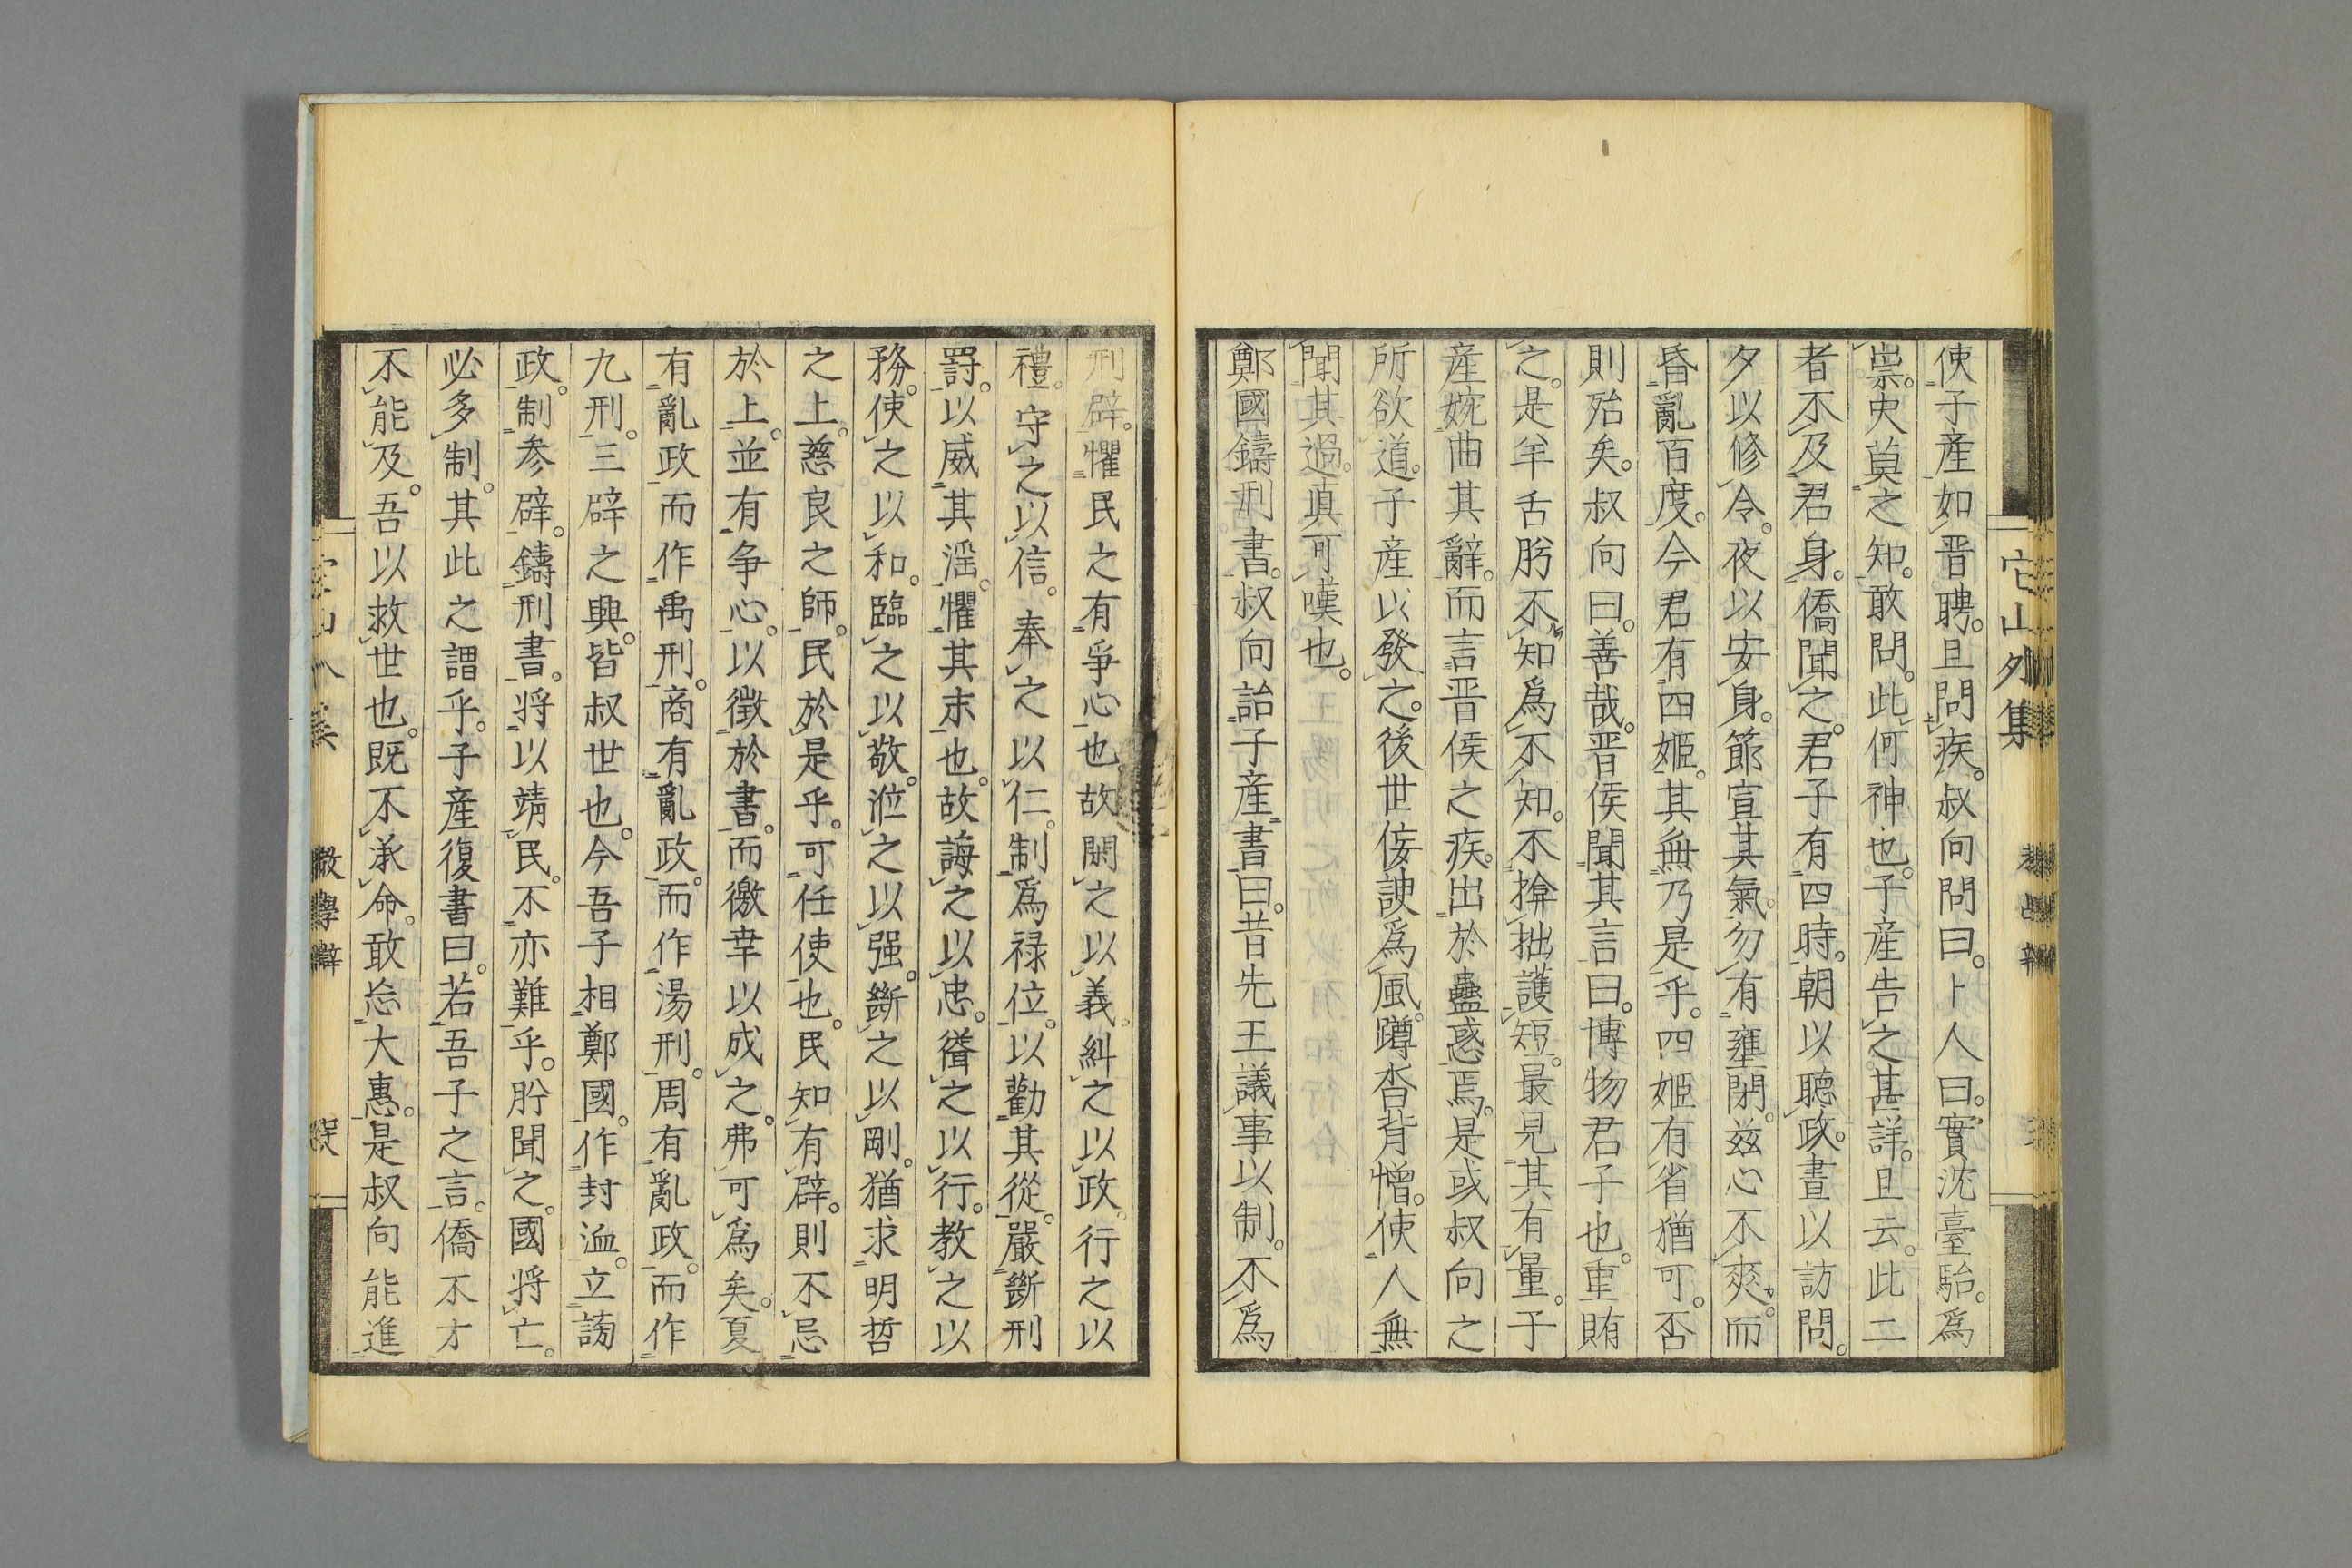 使子產如晋聘。且問疾。叔向問曰。卜人曰。實沈臺駘。爲
崇。史莫之知。敢問。此何神也。子產告之。甚詳。且云。此二
者不及君身。僑聞之。君子有四時。朝以聽政。晝以訪問。
夕以修令。夜以安身。節宣其氣。勿有壅閉。茲心不爽。而
昏亂百度。今君有四姬。其無乃是乎。四姬有省猶可。否
則殆矣。叔向曰。善哉。晋侯聞其言曰。博物君子也。重賄
之。是羊舌肸不知爲不知。不揜拙護短。最見其有量。于
產婉曲其辭。而言晋侯之疾。出於蠱惑焉。是或叔向之
所欲道。子產以發之。後世侫諛爲風。蹲沓背憎。使人無
聞其過。眞可嘆也。
鄭國鑄刑書。叔向詒子產書曰。昔先王議事以制。不爲
刑辟。懼民之有爭心也。故閑之以義。糾之以政。行之以
禮。守之以信。奉之以仁。制爲祿位。以勸其從。嚴斷刑
罰。以威其淫。懼其末也。故誨之以忠。聳之以行。教之以
務。使之以和。臨之以敬。涖之以强。斷之以剛。猶求明哲
之上。慈良之師。民於是乎。可任使也。民知有辟。則不忌
於上。並有争心。以徵於書。而徼幸以成之。弗可爲矣。夏
有亂政而作禹刑。商有亂政。而作湯刑。周有亂政。而作
九刑。三辟之興。皆叔世也。今吾子相鄭國。作封洫。立謗
政。制参辟。鑄刑書。将以靖民。不亦難乎。肸聞之。國将亡。
必多制。其此之謂乎。子產復書曰。若吾子之言。僑不才
不能及。吾以救世也。既不承命。敢忘大惠。是叔向能進
它山外集